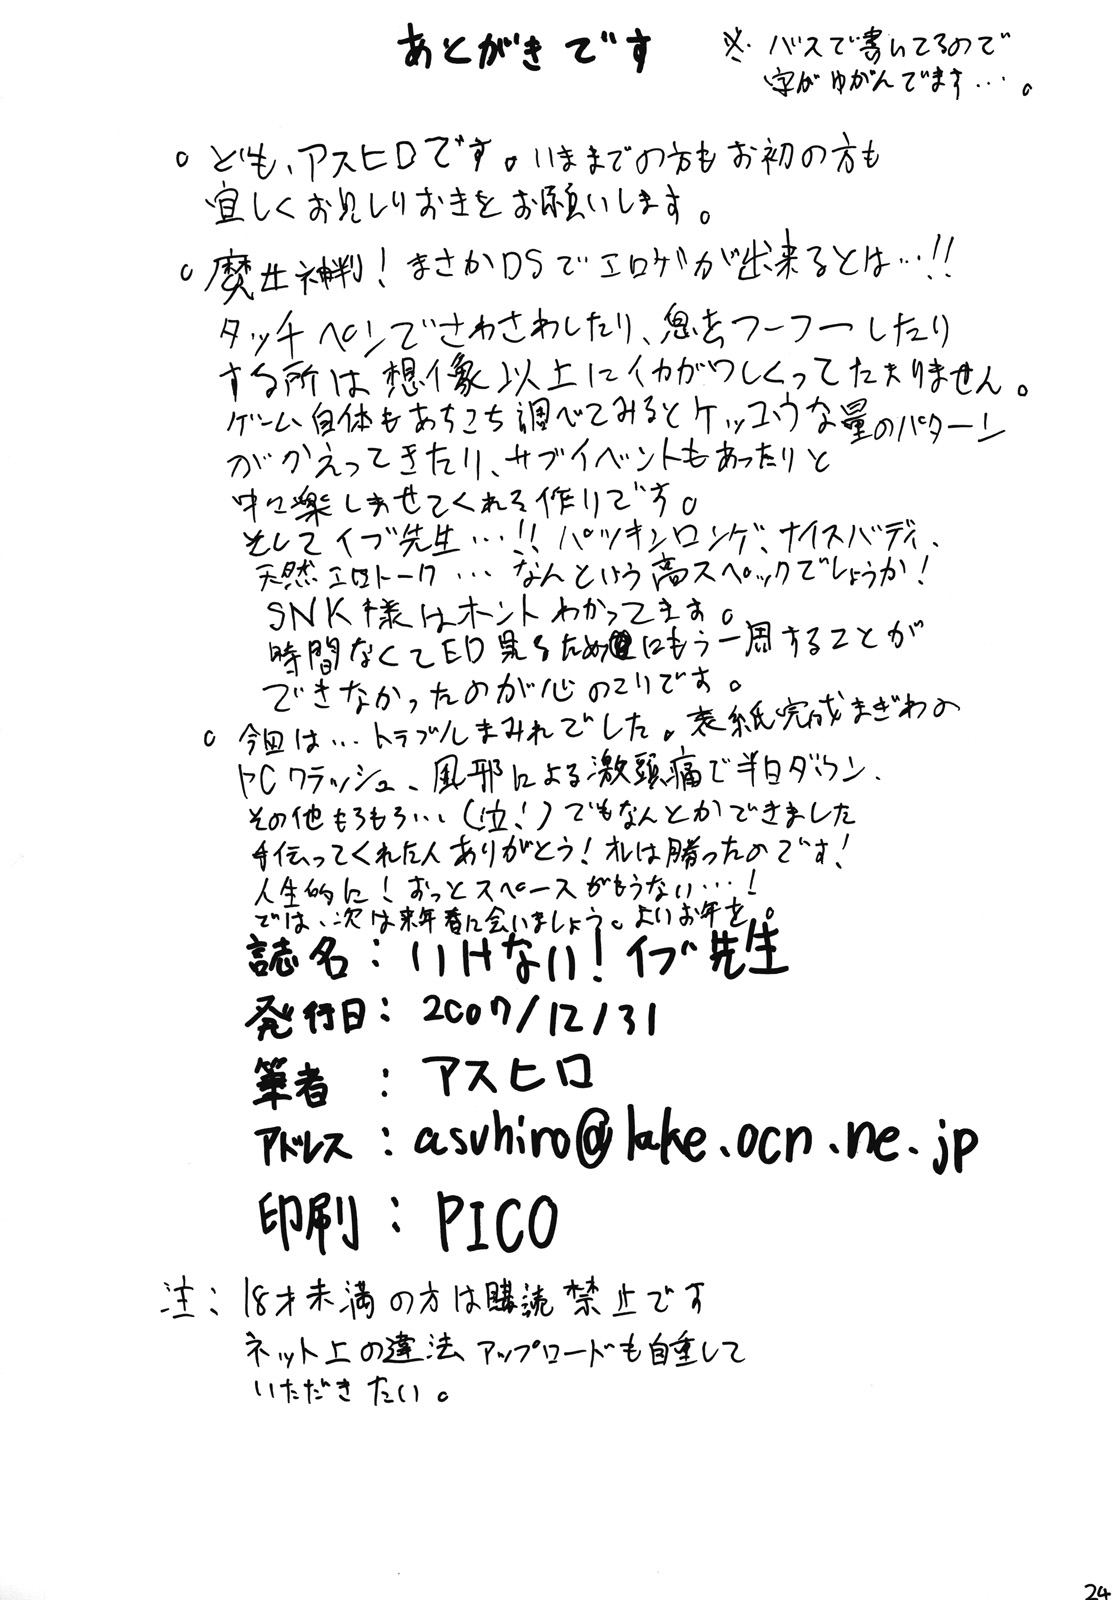 あとがきです
※ バスで書いてるので
字がゆがんでます…。
。ども、アスヒロです。いままでの方もお初の方も
宜しくお見しりおきをお願いします。
。魔女神判！まさかDSでエロゲが出来るとは…!!
タッチペンでさわさわしたり、息をフーフーしたり
する所は想像以上にイカガワしくってたまりません。
ゲーム自体もあちこち調べてみるとケッコウな量のパターン
がかえってきたり、サブイベントもあったりと
中々楽しませてくれる作りです。
そしてイブ先生…!! パツキンロンゲ、ナイスバディ、
天然エロトーク…なんという高スペックでしょうか！
SNK様はホントわかってます。
時間なくてED見るためにもう一周することが
できなかったのが心のこりです。
。今回は…トラブルまみれでした。表紙完成まぎわの
PCクラッシュ、風邪による激頭痛で半日ダウン、
その他もろもろ…（泣！）でもなんとかできました
手伝ってくれた人ありがとう！オレは勝ったのです！
人生的に！おっとスペースがもうない…！
では、次は来年春に会いましょう。よいお年を。
誌名：いけない！イブ先生
発行日：2007/12/31
筆者：アスヒロ
アドレス：asuhiro@lake.ocn.ne.jp
印刷：PICO
注：18才未満の方は購読禁止です
ネット上の違法アップロードも自重して
いただきたい。
24